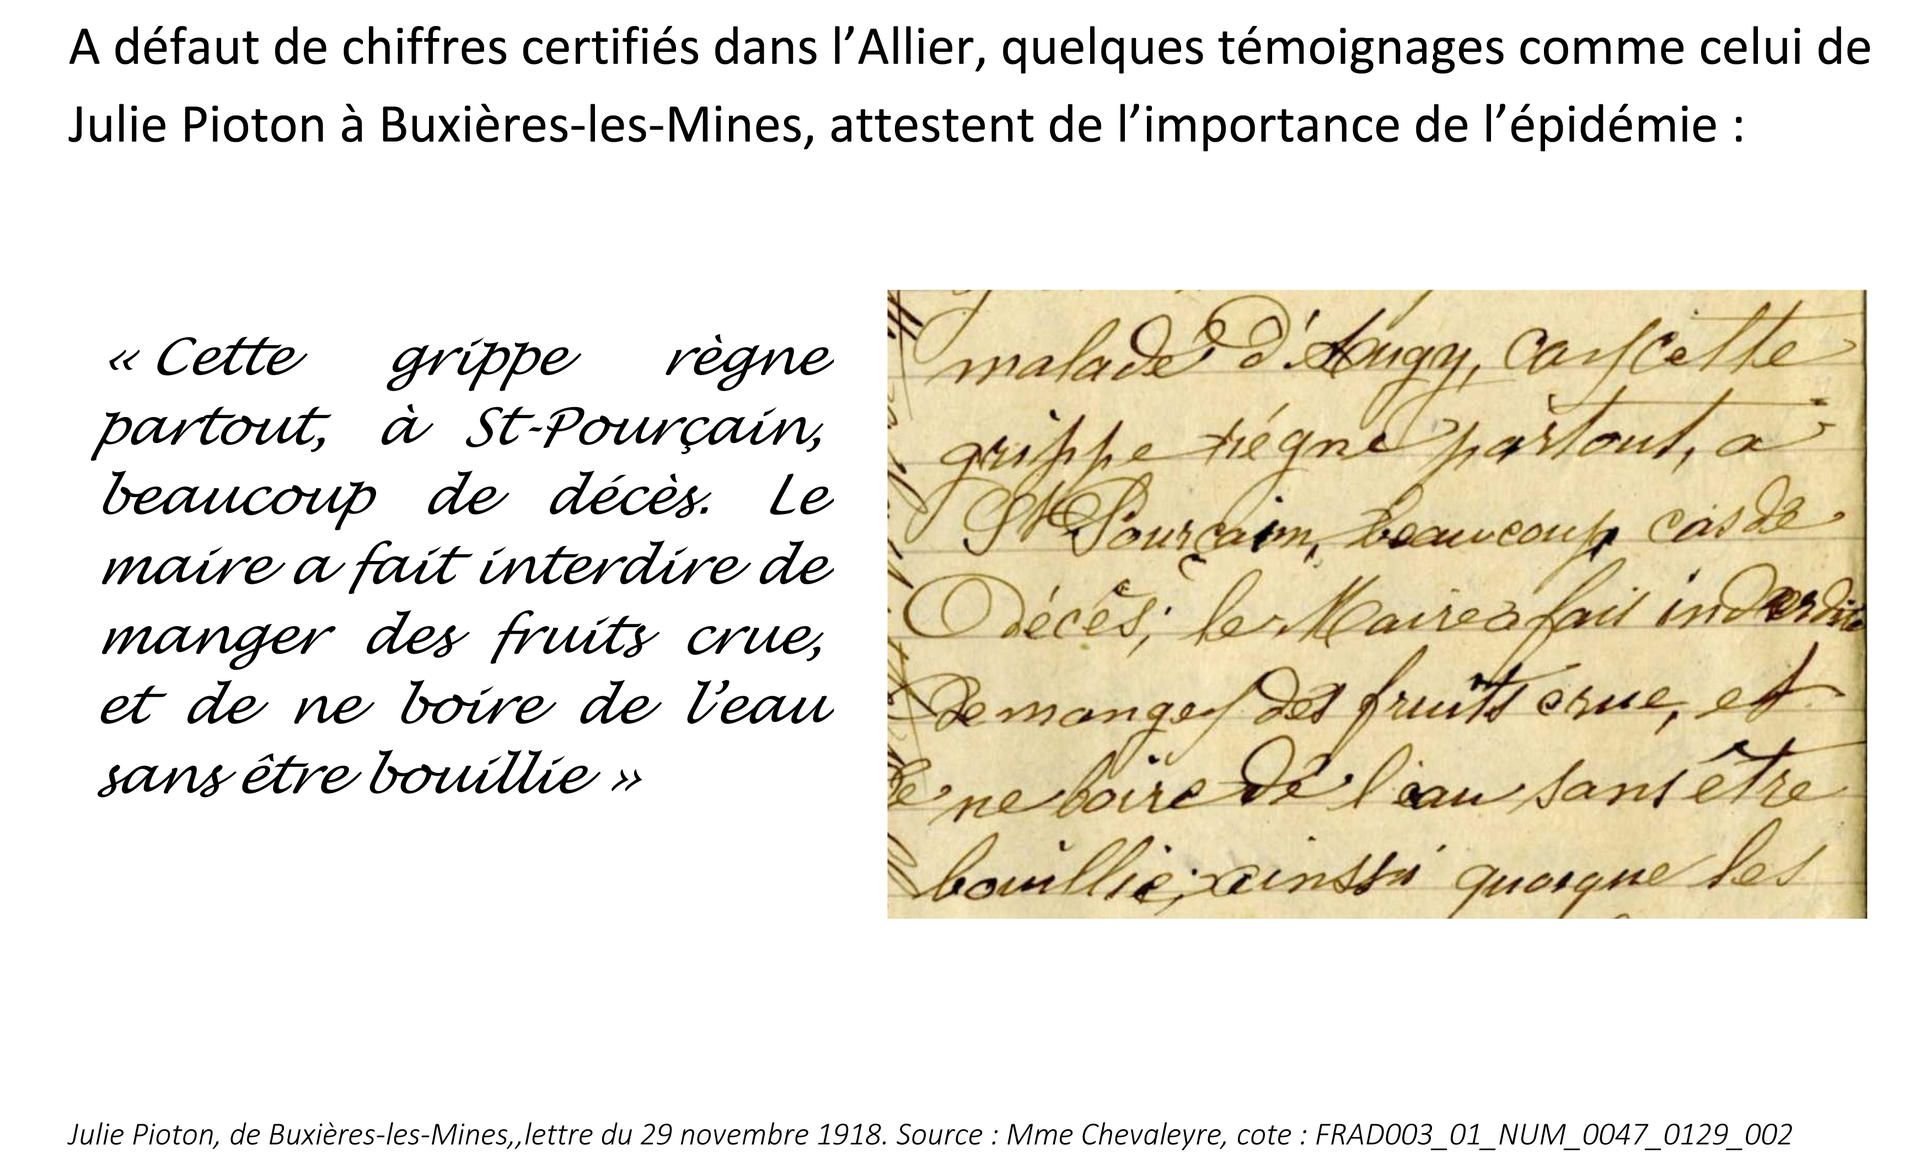 A défaut de chiffres certifiés dans l’Allier, quelques témoignages comme celui de
Julie Pioton à Buxières-les-Mines, attestent de l’importance de l’épidémie :
« Cette grippe règne
partout, à St-Pourçain,
beaucoup de décès. Le
maire a fait interdire de
manger des fruits crue,
et de ne boire de l’eau
sans être bouillie »
malade d'Augy, car cette
grippe régne partout, a
St Pourçain, beaucoup cas de
Décès; le Maire a fait interdire
de manger des fruits crue, et
de ne boire de l'eau sans être
bouillie, ainssi quoique les
Julie Pioton, de Buxières-les-Mines,,lettre du 29 novembre 1918. Source : Mme Chevaleyre, cote : FRAD003_01_NUM_0047_0129_002